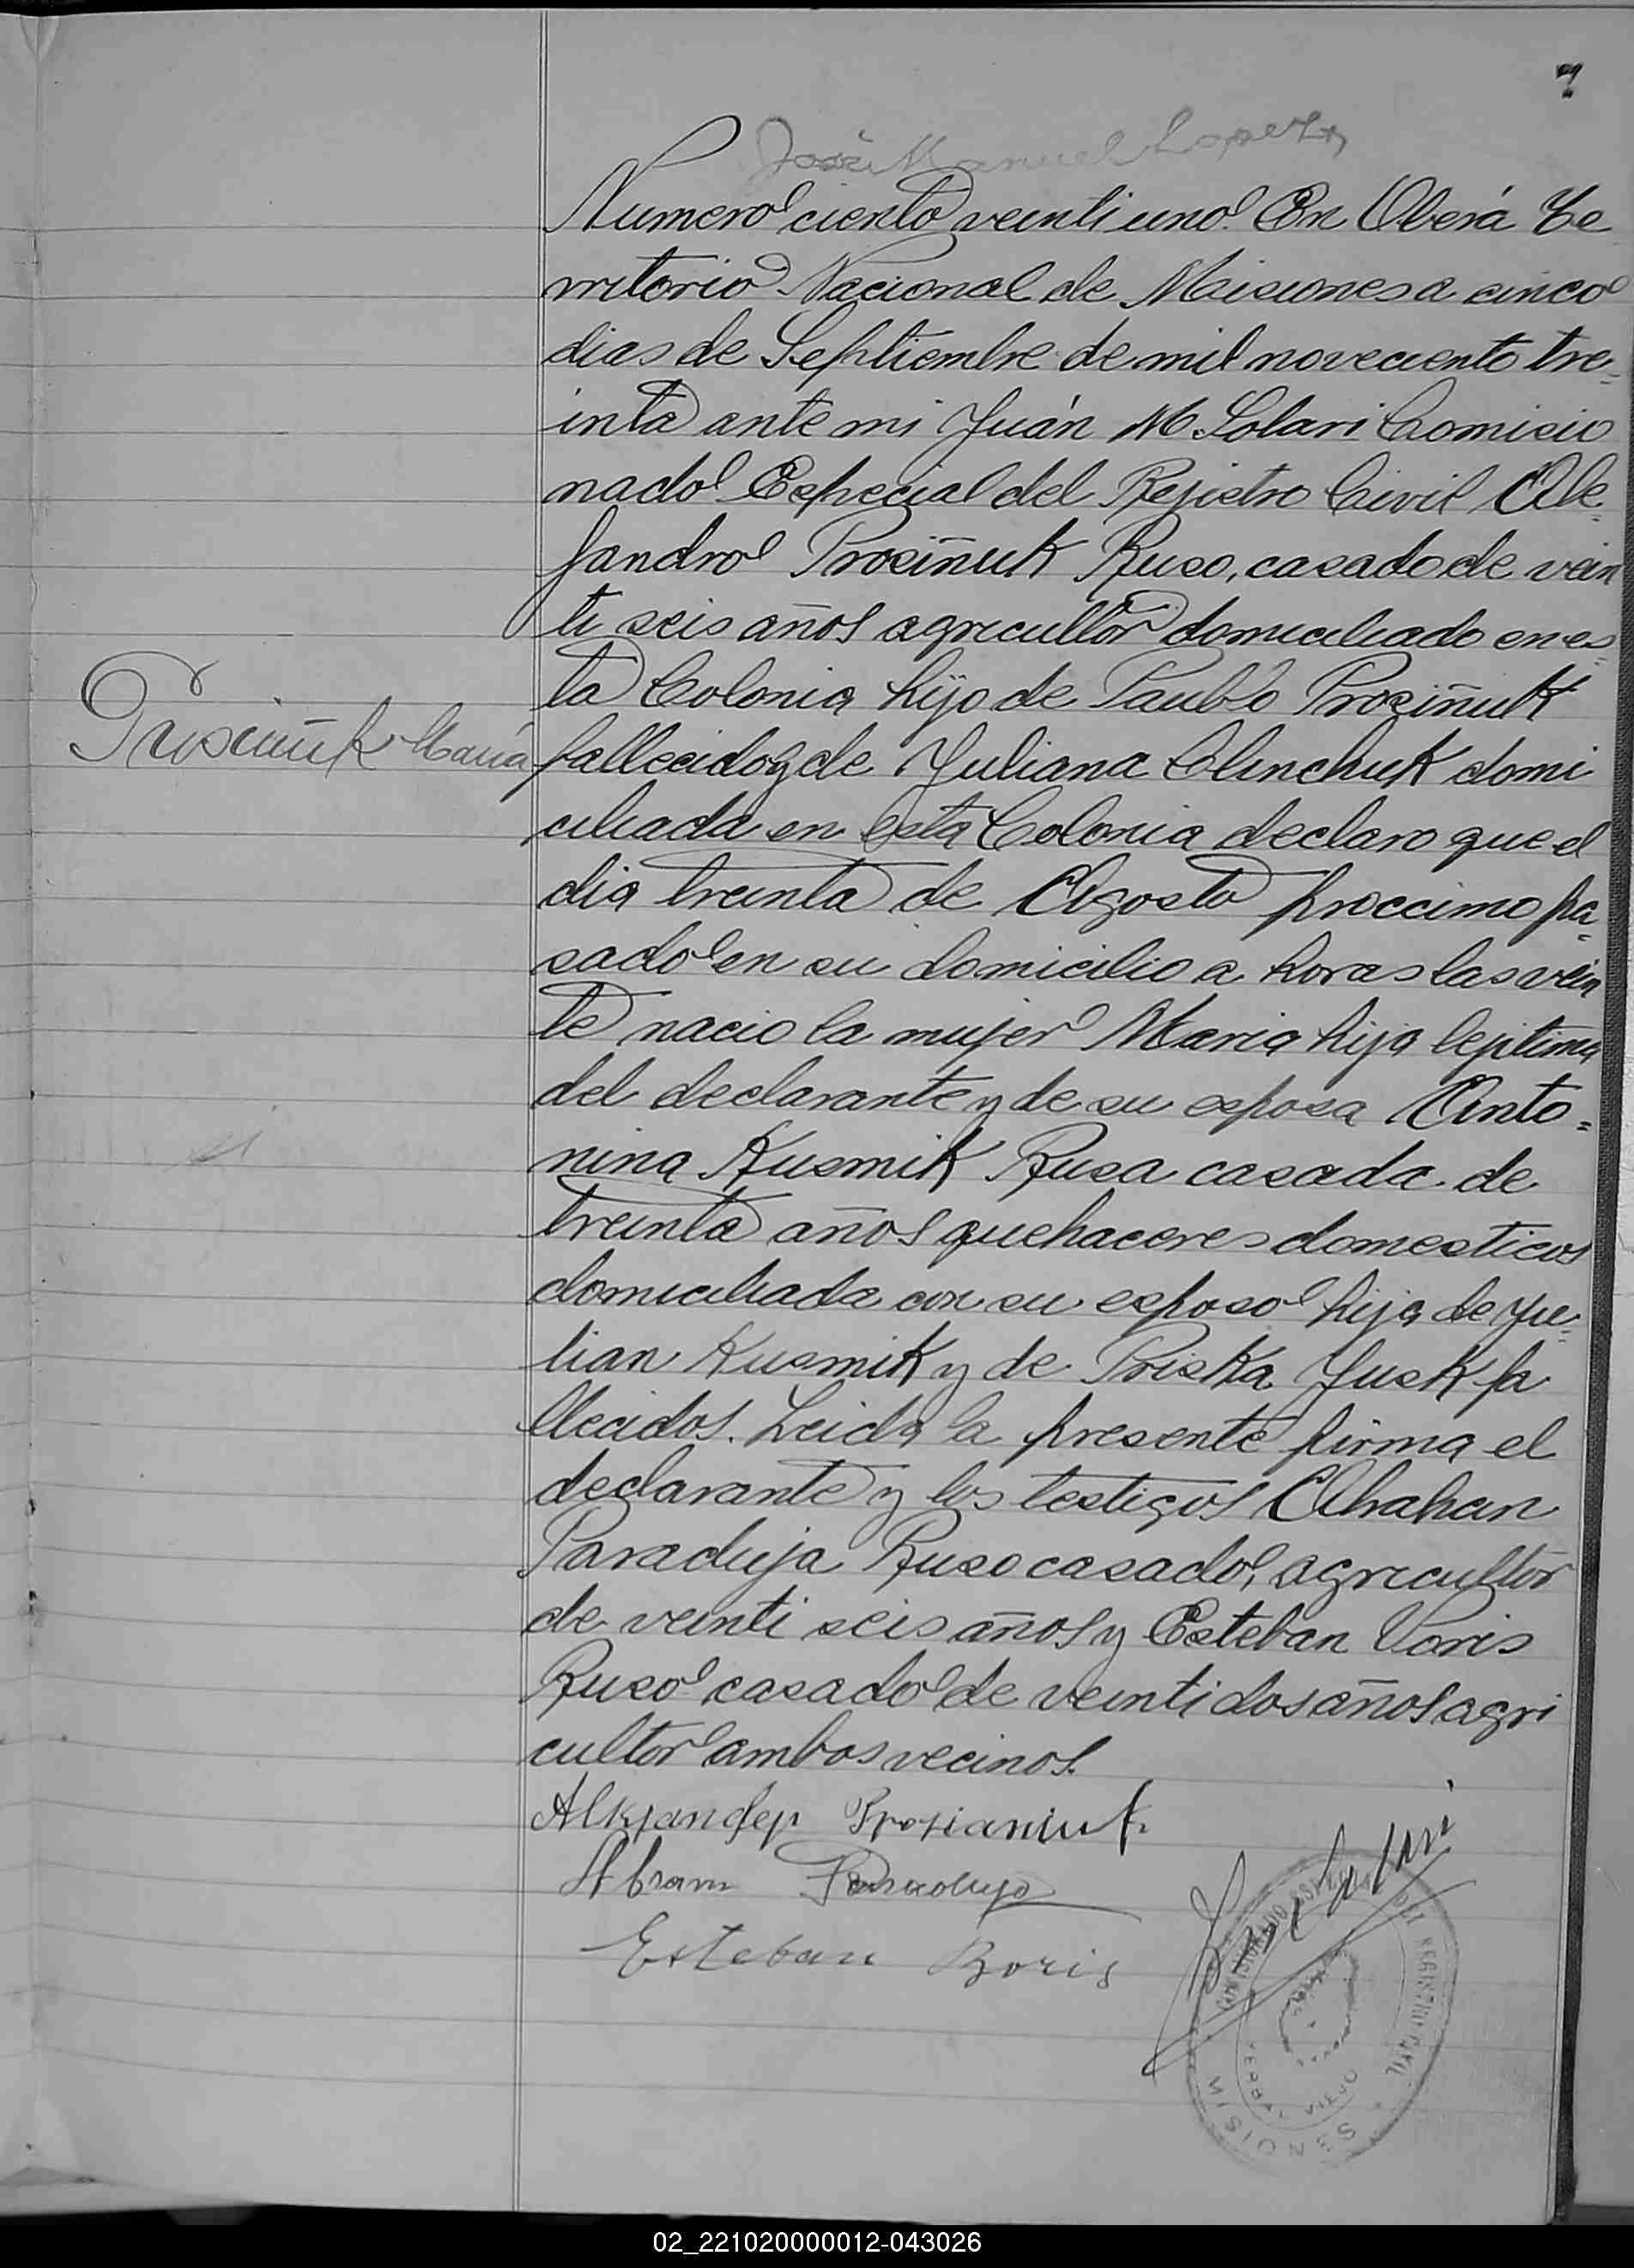 7
José Manuel Lopez
Numero ciento veinti uno. En Oberá Te
rritorio Nacional de Misiones a cinco
dias de Septiembre de mil noveciento tre=
inta ante mi Juán M. Solari Comisio
nado Especial del Rejistro Civil Ale=
jandro Prosiñuk Ruso, casado de vein
ti seis años agricultor domiciliado en es=
ta Colonia hijo de Paublo Prosiñuk
Prosiñuk María
fallecido y de Juliana Clinchuk domi
ciliada en esta Colonia declaro que el
dia treinta de Agosto proccimo pa=
sado en su domicilio a horas las vein
te nacio la mujer Maria hija lejitima
del declarante y de su esposa Anto=
nina Kusmik Rusa casada de
treinta años quehaceres domesticos
domiciliada con su esposo hija de Ju=
lian Kusmik y de Priska Jusk fa
llecidos. Leida la presente firma el
declarante y los testigos Abrahan
Paraduja Ruso casado, agricultor
de veinti seis años y Esteban Voris
Ruso casado de veinti dos años agri
cultor ambos vecinos.
Prosianiuk
Abram Paraduja
Esteban Boris
COMISIONADO ESPECIAL DEL REGISTRO CIVIL
YERBAL VIEJO
MISIONES
02_221020000012-043026